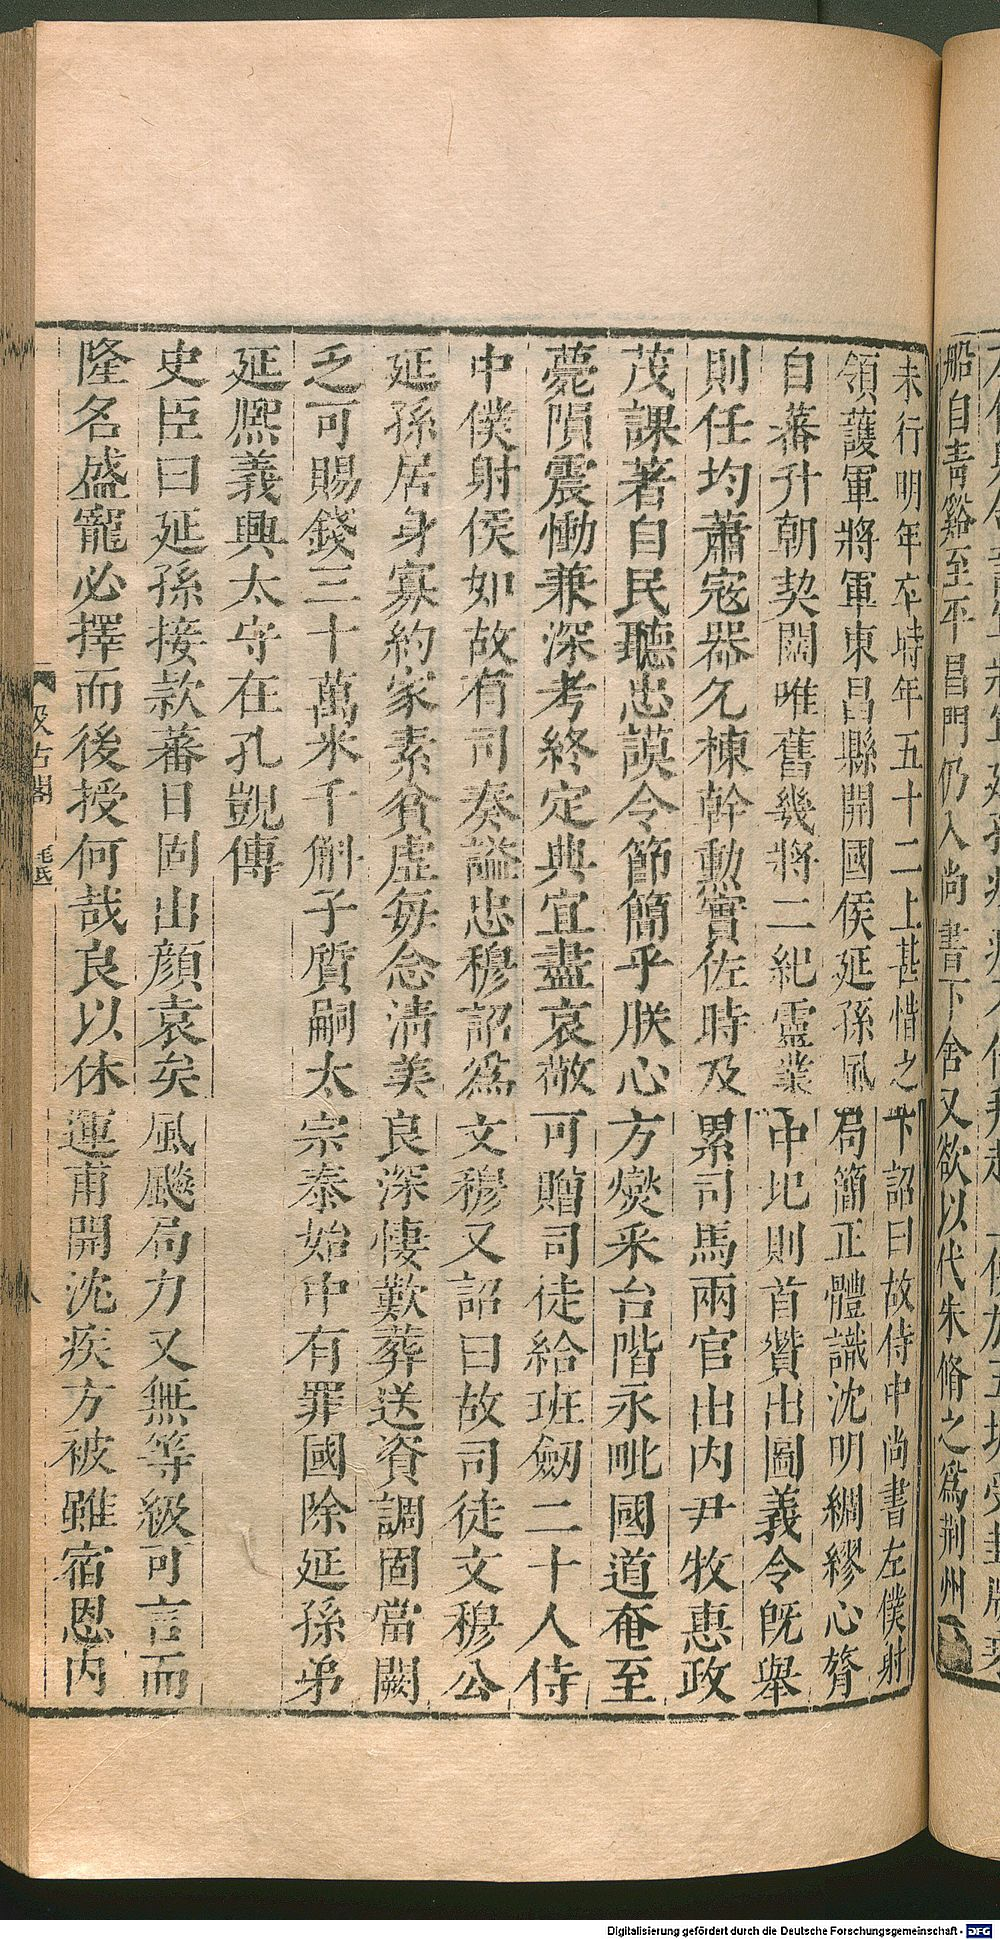 船自青谿至平昌門仍入尚書下舍又欲以代朱脩之爲荆州
未行明年卒時年五十二上甚惜之下詔曰故侍中尚書左僕射
領護軍將軍東昌縣開國侯延孫風局簡正體識沈明綢繆心膂
自蕃升朝契闊唯舊幾將二紀靈業中圮則首贊出圖義令旣舉
則任均蕭寇器允棟幹勲實佐時及累司馬兩官出内尹牧惠政
茂課著自民聽忠謨令節簡乎朕心方爕釆台階永毗國道奄至
薨隕震慟兼深考終定典宜盡哀敬可贈司徒給班劒二十人侍
中僕射侯如故有司奏謚忠穆詔爲文穆又詔曰故司徒文穆公
延孫居身寡約家素貧虛每念清美良深悽歎葬送資調固當闕
乏可賜錢三十萬米千斛子質嗣太宗泰始中有罪國除延孫弟
延熈義興太守在孔覬傳
史臣曰延孫接款蕃日固出顔袁矣風飈局力又無等級可言而
隆名盛寵必擇而後授何哉良以休運甫開沈疾方被雖宿恩内
汲古閣
八
Digitalisierung gefördert durch die Deutsche Forschungsgemeinschaft - DFG